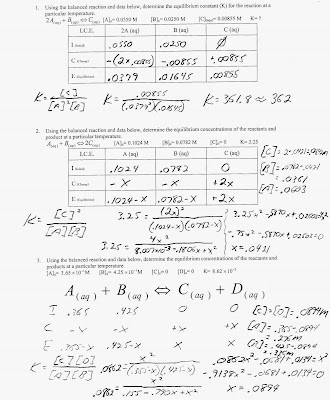 1. Using the balanced reaction and data below, determine the equilibrium constant (K) for the reaction at a particular temperature.
2A(aq) + B(aq) ⇔ C(aq) [A]₀= 0.0550 M [B]₀= 0.0250 M [C]equil= 0.00855 M K= ?
I.C.E. 2A (aq) B (aq) C (aq)
I nitial .0550 .0250 Ø
C change -(2x.00855) -.00855 +.00855
E quilibrium .0379 .01645 .00855
K = [C] / [A]²[B] K = .00855 / (.0379²)(.01645) K = 361.8 ≈ 362
2. Using the balanced reaction and data below, determine the equilibrium concentrations of the reactants and product at a particular temperature.
A(aq) + B(aq) ⇔ 2C(aq) [A]₀= 0.1024 M [B]₀= 0.0782 M [C]₀= 0 K= 3.25
I.C.E. A (aq) B (aq) C (aq)
I nitial .1024 .0782 0
C change -x -x +2x
E quilibrium .1024-x .0782-x =2x
[B] = .0782-.0421
= .0361
[A] = .0603
K = [C]² / [A][B] 3.25 = (2x)² / (.1024-x)(.0782-x)
x = .0421
3. Using the balanced reaction and data below, determine the equilibrium concentrations of the reactants and products at a particular temperature.
[A]₀= 3.65 x 10⁻¹ M [B]₀= 4.25 x 10⁻¹ M [C]₀= 0 [D]₀= 0 K= 8.62 x 10⁻²
A(aq) + B(aq) ⇔ C(aq) + D(aq)
I .365 .425 0 0
C -x -x +x +x
E .365-x .425-x x x
[C] = [D] = .0894M
K = [C][D] / [A][B] .0862 = x² / (.365-x)(.425-x)
.0862 = x² / .155-.790x+x²
x = .0894